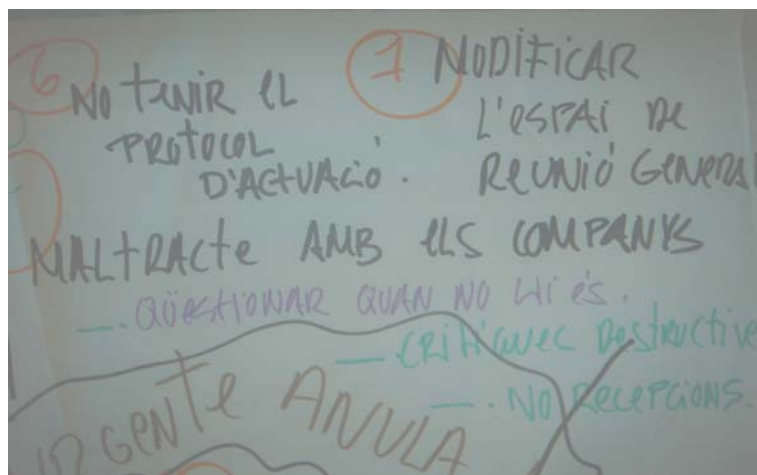 6 NO tENIR EL
PROtOCOL
D'ACtUACIÓ.
7 MODIFICAR
L'ESPAI DE
REUNIÓ GENERAL
MALtRACtE AMB ELS COMPANYS
—. QÜESTIONAR QUAN NO HI ÉS.
— CRITIQUEC DEStRUCTIVE
—. NO RECEPCIONS.
URGENTE ANULA